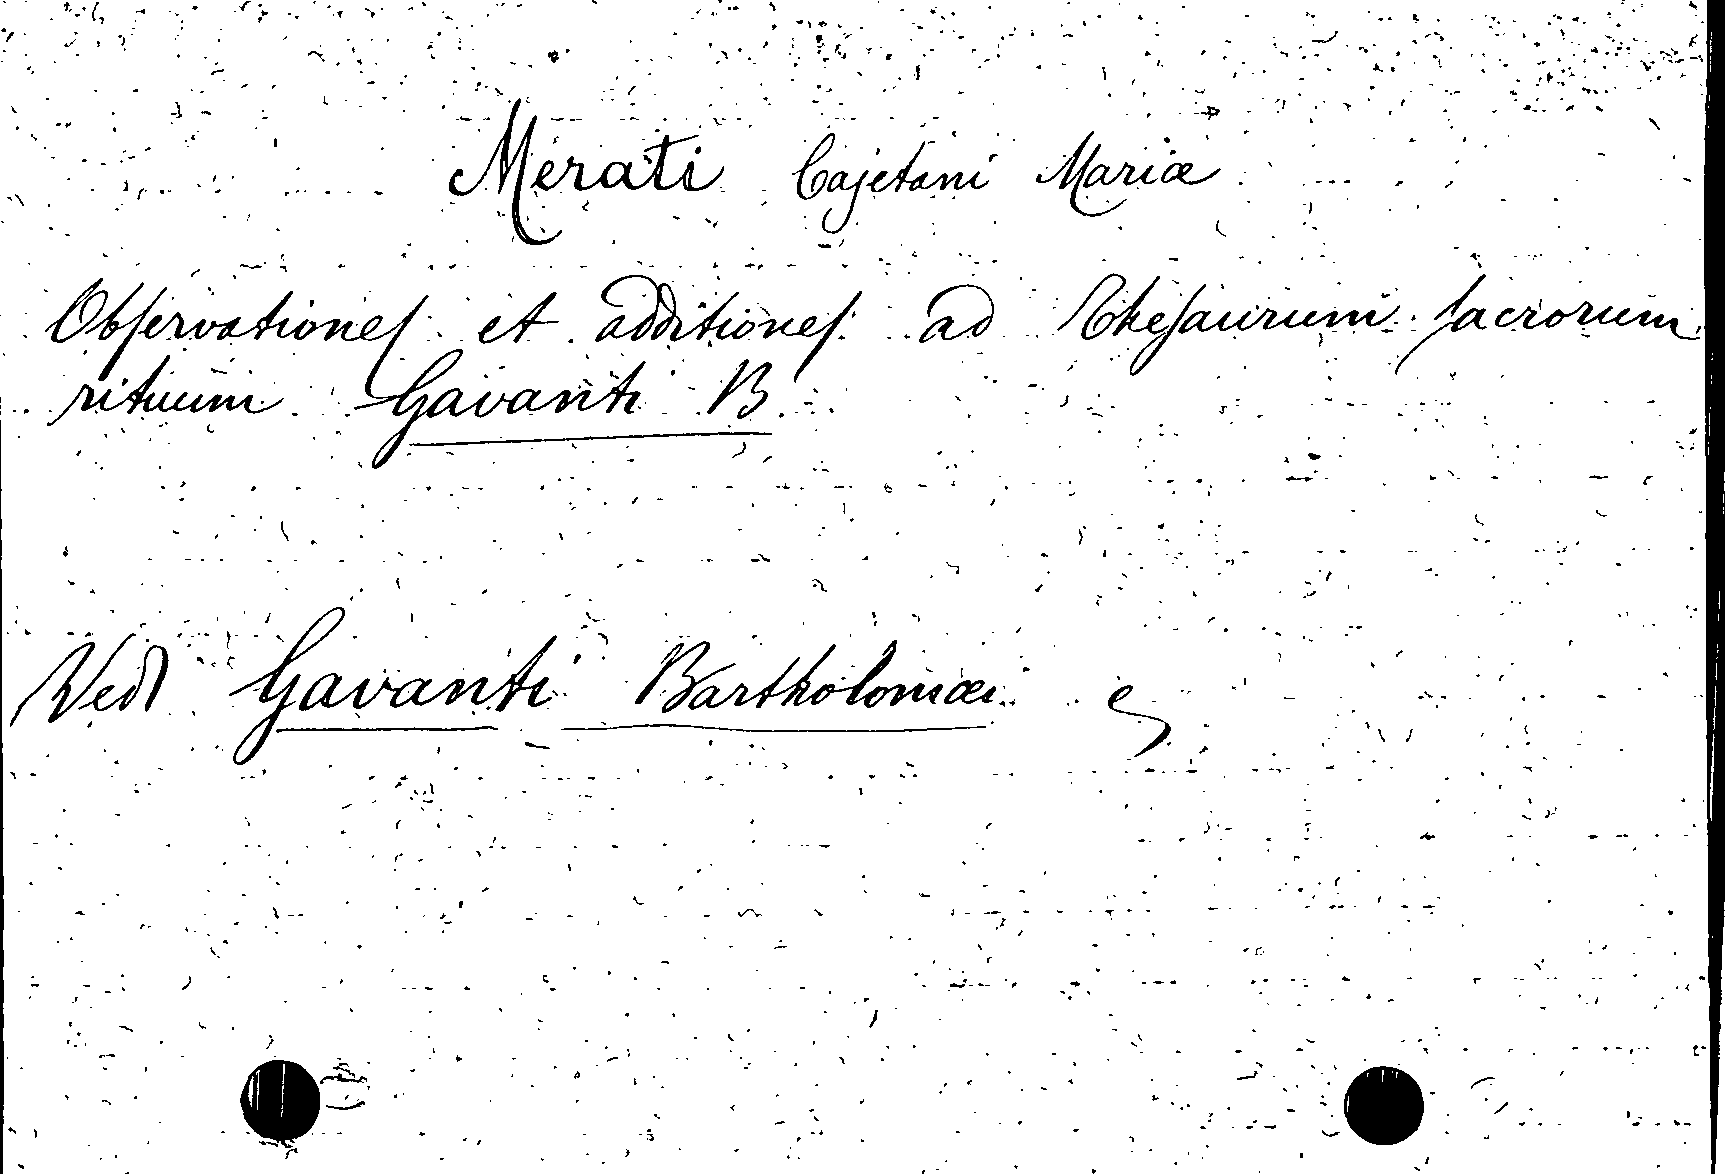 Merati Cajetani Mariæ
Obſervationeſ et additioneſ ad Theſaurum ſacrorum
rituum Gavanti B.
Vedi Gavanti Bartholomæi